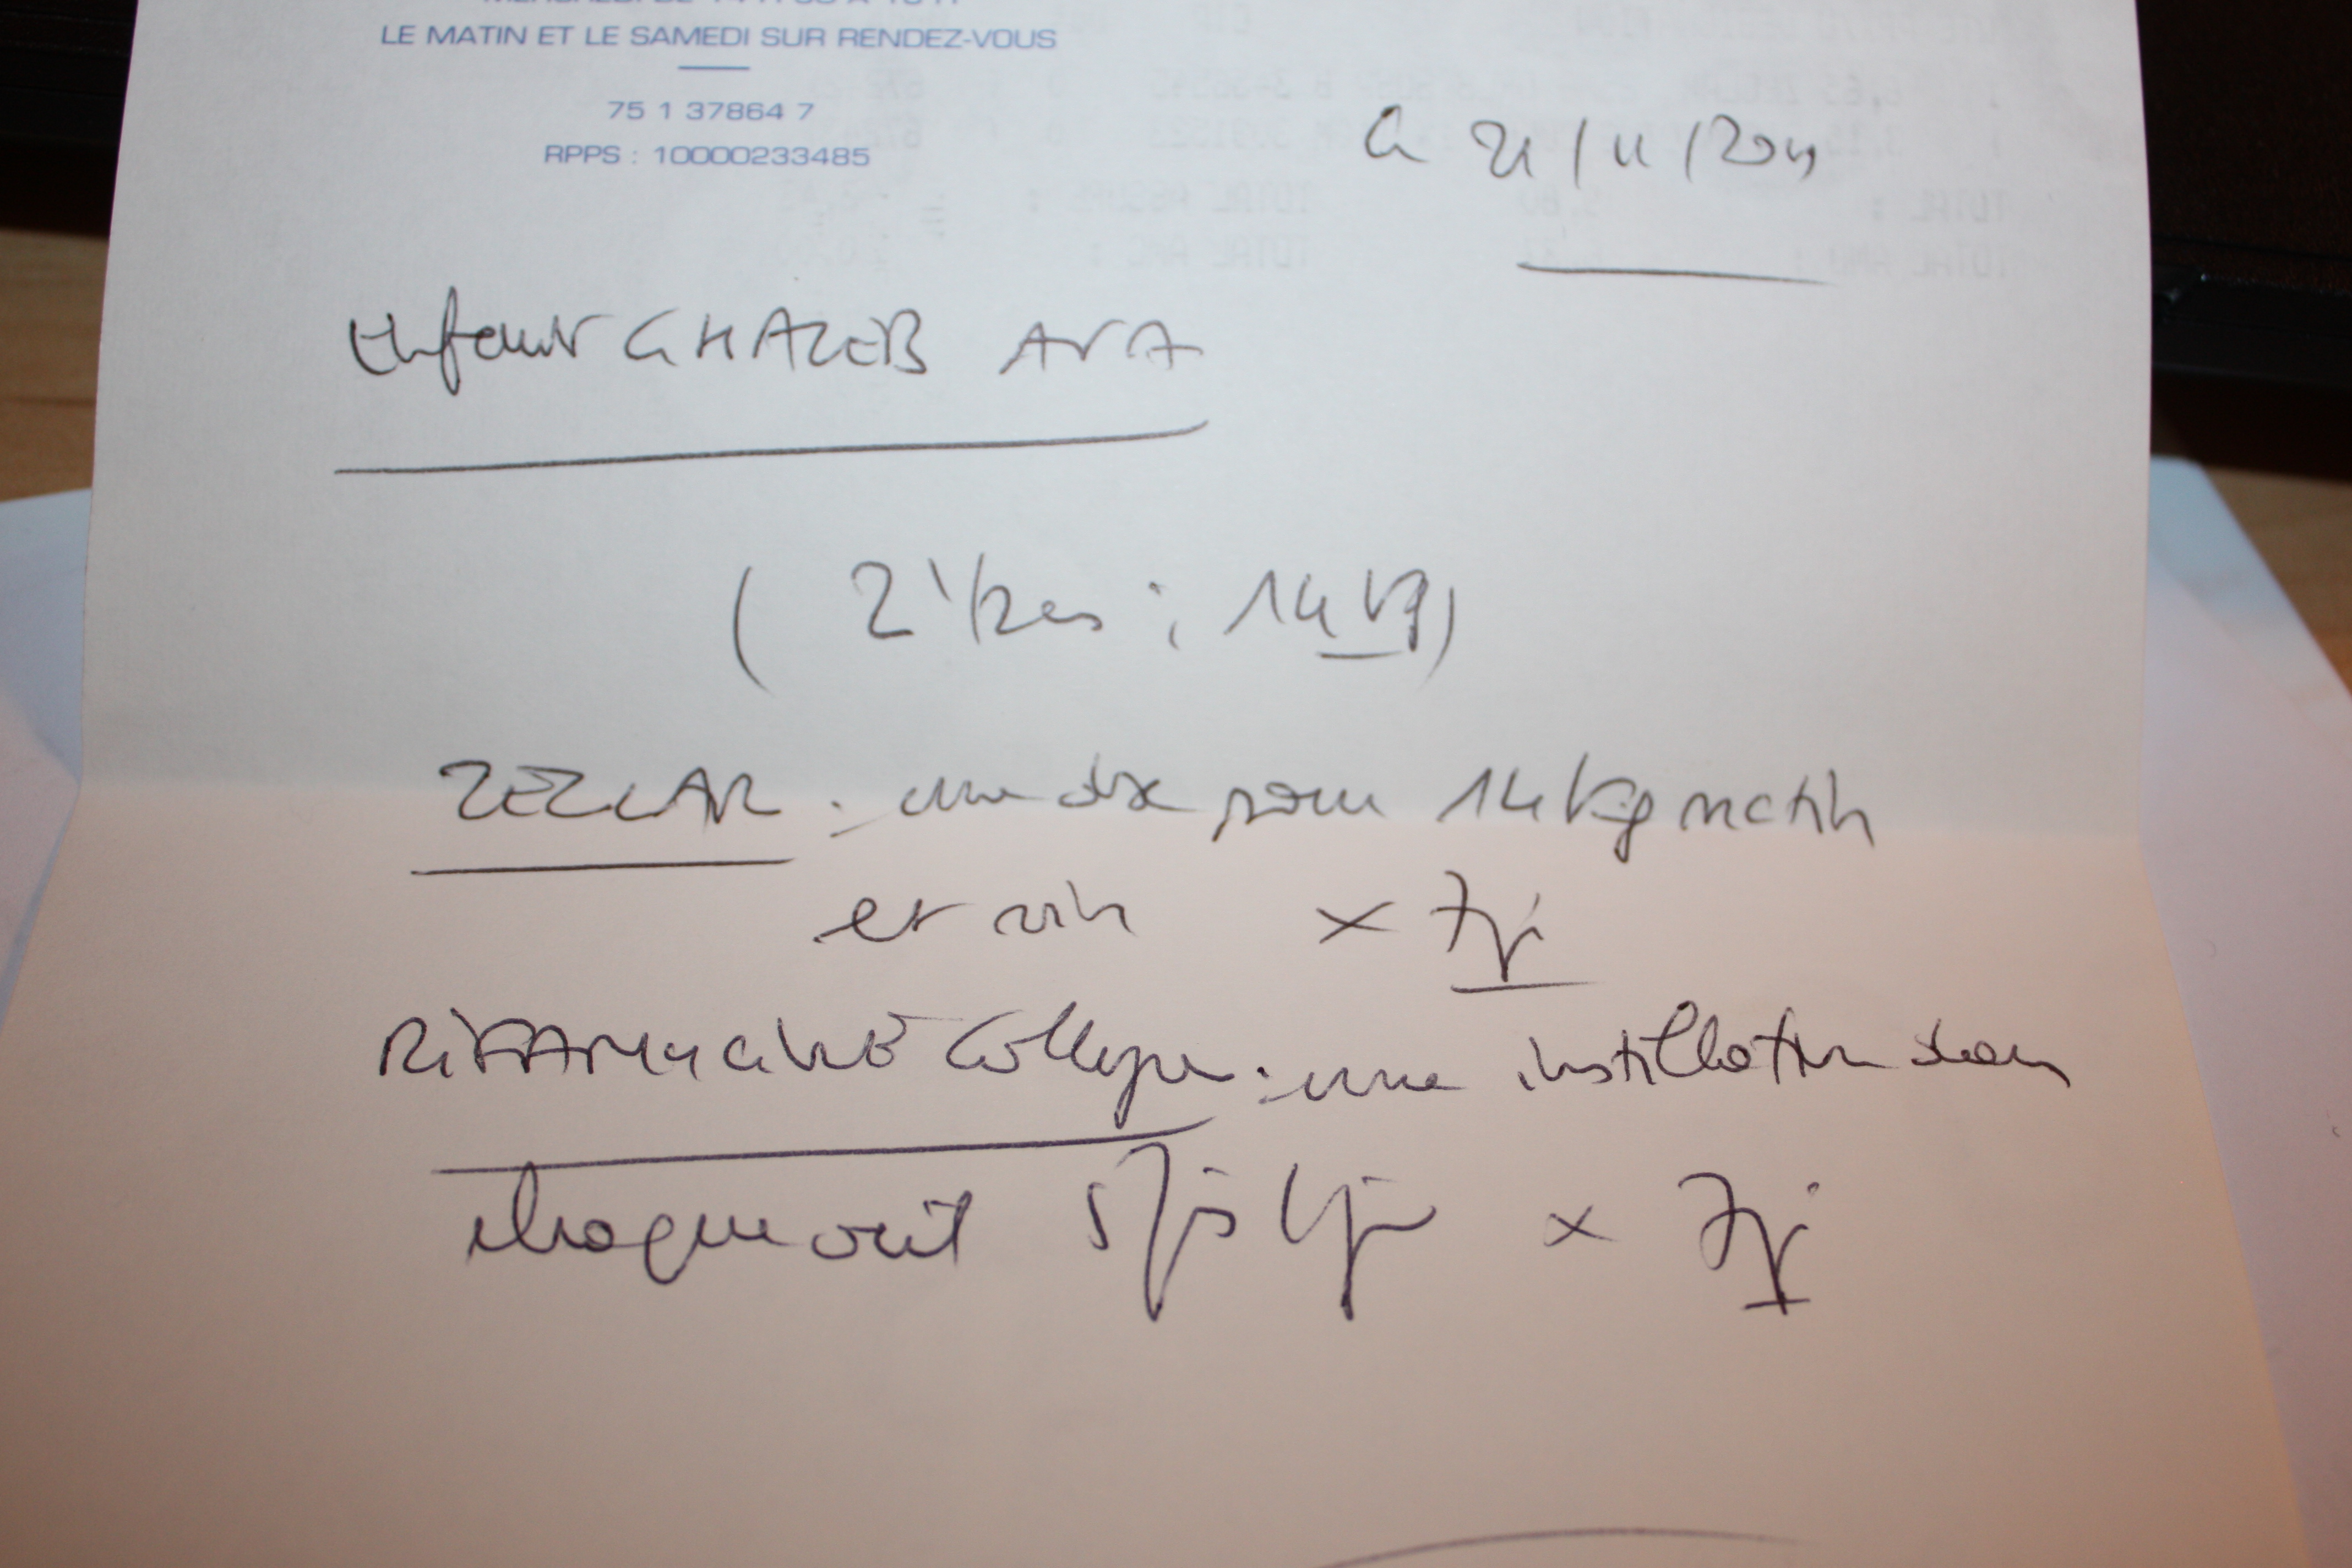 LE MATIN ET LE SAMEDI SUR RENDEZ-VOUS
75 1 37864 7
RPPS : 10000233485
le 21/11/2011
Enfant GHALEB AVA
( 2 1/2 ans ; 14 kg)
ZECLAR : une dose pour 14 kg matin
et soir x 7j
RIFAMYCINE Collyre : une instillation dans
chaque oeil 5 fois / jour x 7j